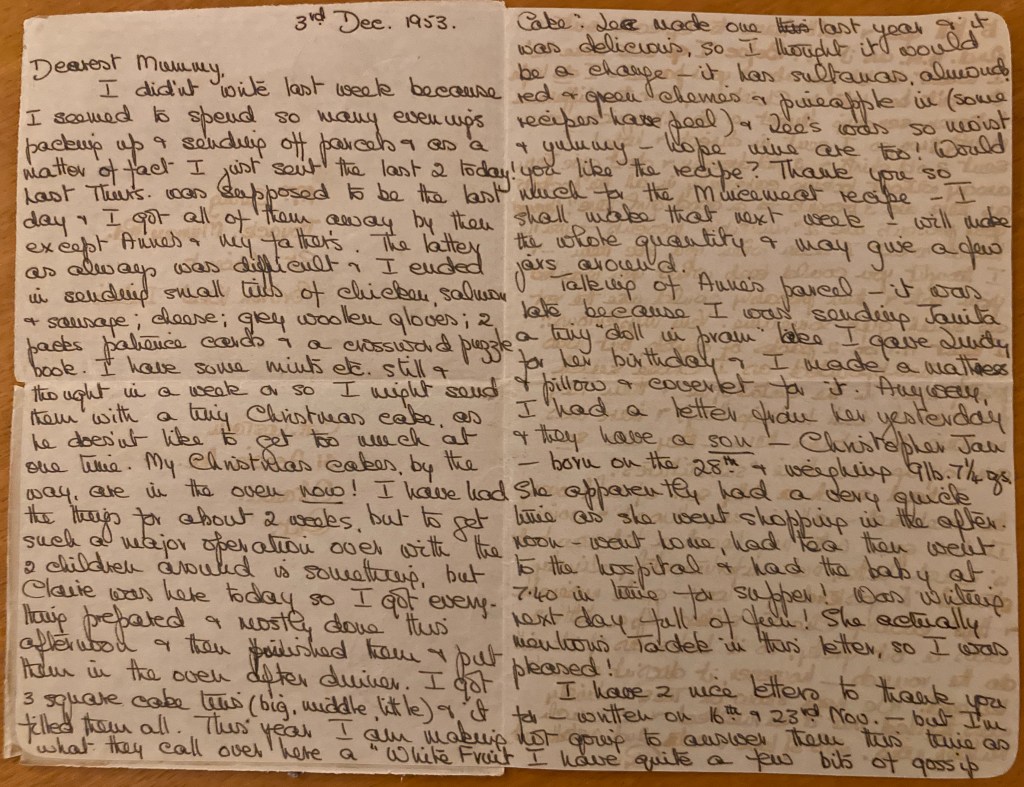 3rd Dec. 1953.
Dearest Mummy,
I didn't write last week because
I seemed to spend so many evenings
packing up & sending off parcels & as a
matter of fact I just sent the last 2 today!
Last Thurs. was supposed to be the last
day & I got all of them away by then
except Anne's & my father's. The latter
as always was difficult & I ended
in sending small tins of chicken, salmon
& sausage; cheese; grey woollen gloves; 2
packs patience cards & a crossword puzzle
book. I have some mints etc. still &
thought in a week or so I might send
them with a tiny Christmas cake, as
he doesn't like to get too much at
one time. My Christmas cakes, by the
way, are in the oven now! I have had
the things for about 2 weeks, but to get
such a major operation over with the
2 children around is something, but
Claire was here today so I got every-
thing prepared & mostly done this
afternoon & then finished them & put
them in the oven after dinner. I got
3 square cake tins (big, middle, little) & it
filled them all. This year I am making
what they call over here a "White Fruit
Cake": Zee made one last year & it
was delicious, so I thought it would
be a change – it has sultanas, almonds,
red & green cherries & pineapple in (some
recipes have peel) & Zee's was so moist
& yummy – hope mine are too! Would
you like the recipe? Thank you so
much for the Mincemeat recipe – I
shall make that next week – will make
the whole quantity & may give a few
jars around.
Talking of Anne's parcel – it was
late because I was sending Janita
a tiny "doll in pram" like I gave Judy
for her birthday & I made a mattress
& pillow & coverlet for it. Anyway,
I had a letter from her yesterday
& they have a son – Christopher Jan
– born on the 28th & weighing 9lb. 7¼ ozs.
She apparently had a very quick
time as she went shopping in the after-
noon – went home, had tea then went
to the hospital & had the baby at
7.40 in time for supper! Was writing
next day full of beans! She actually
mentions Tadek in this letter, so I was
pleased!
I have 2 nice letters to thank you
for – written on 16th & 23rd Nov. – but I'm
not going to answer them this time as
I have quite a few bits of gossip